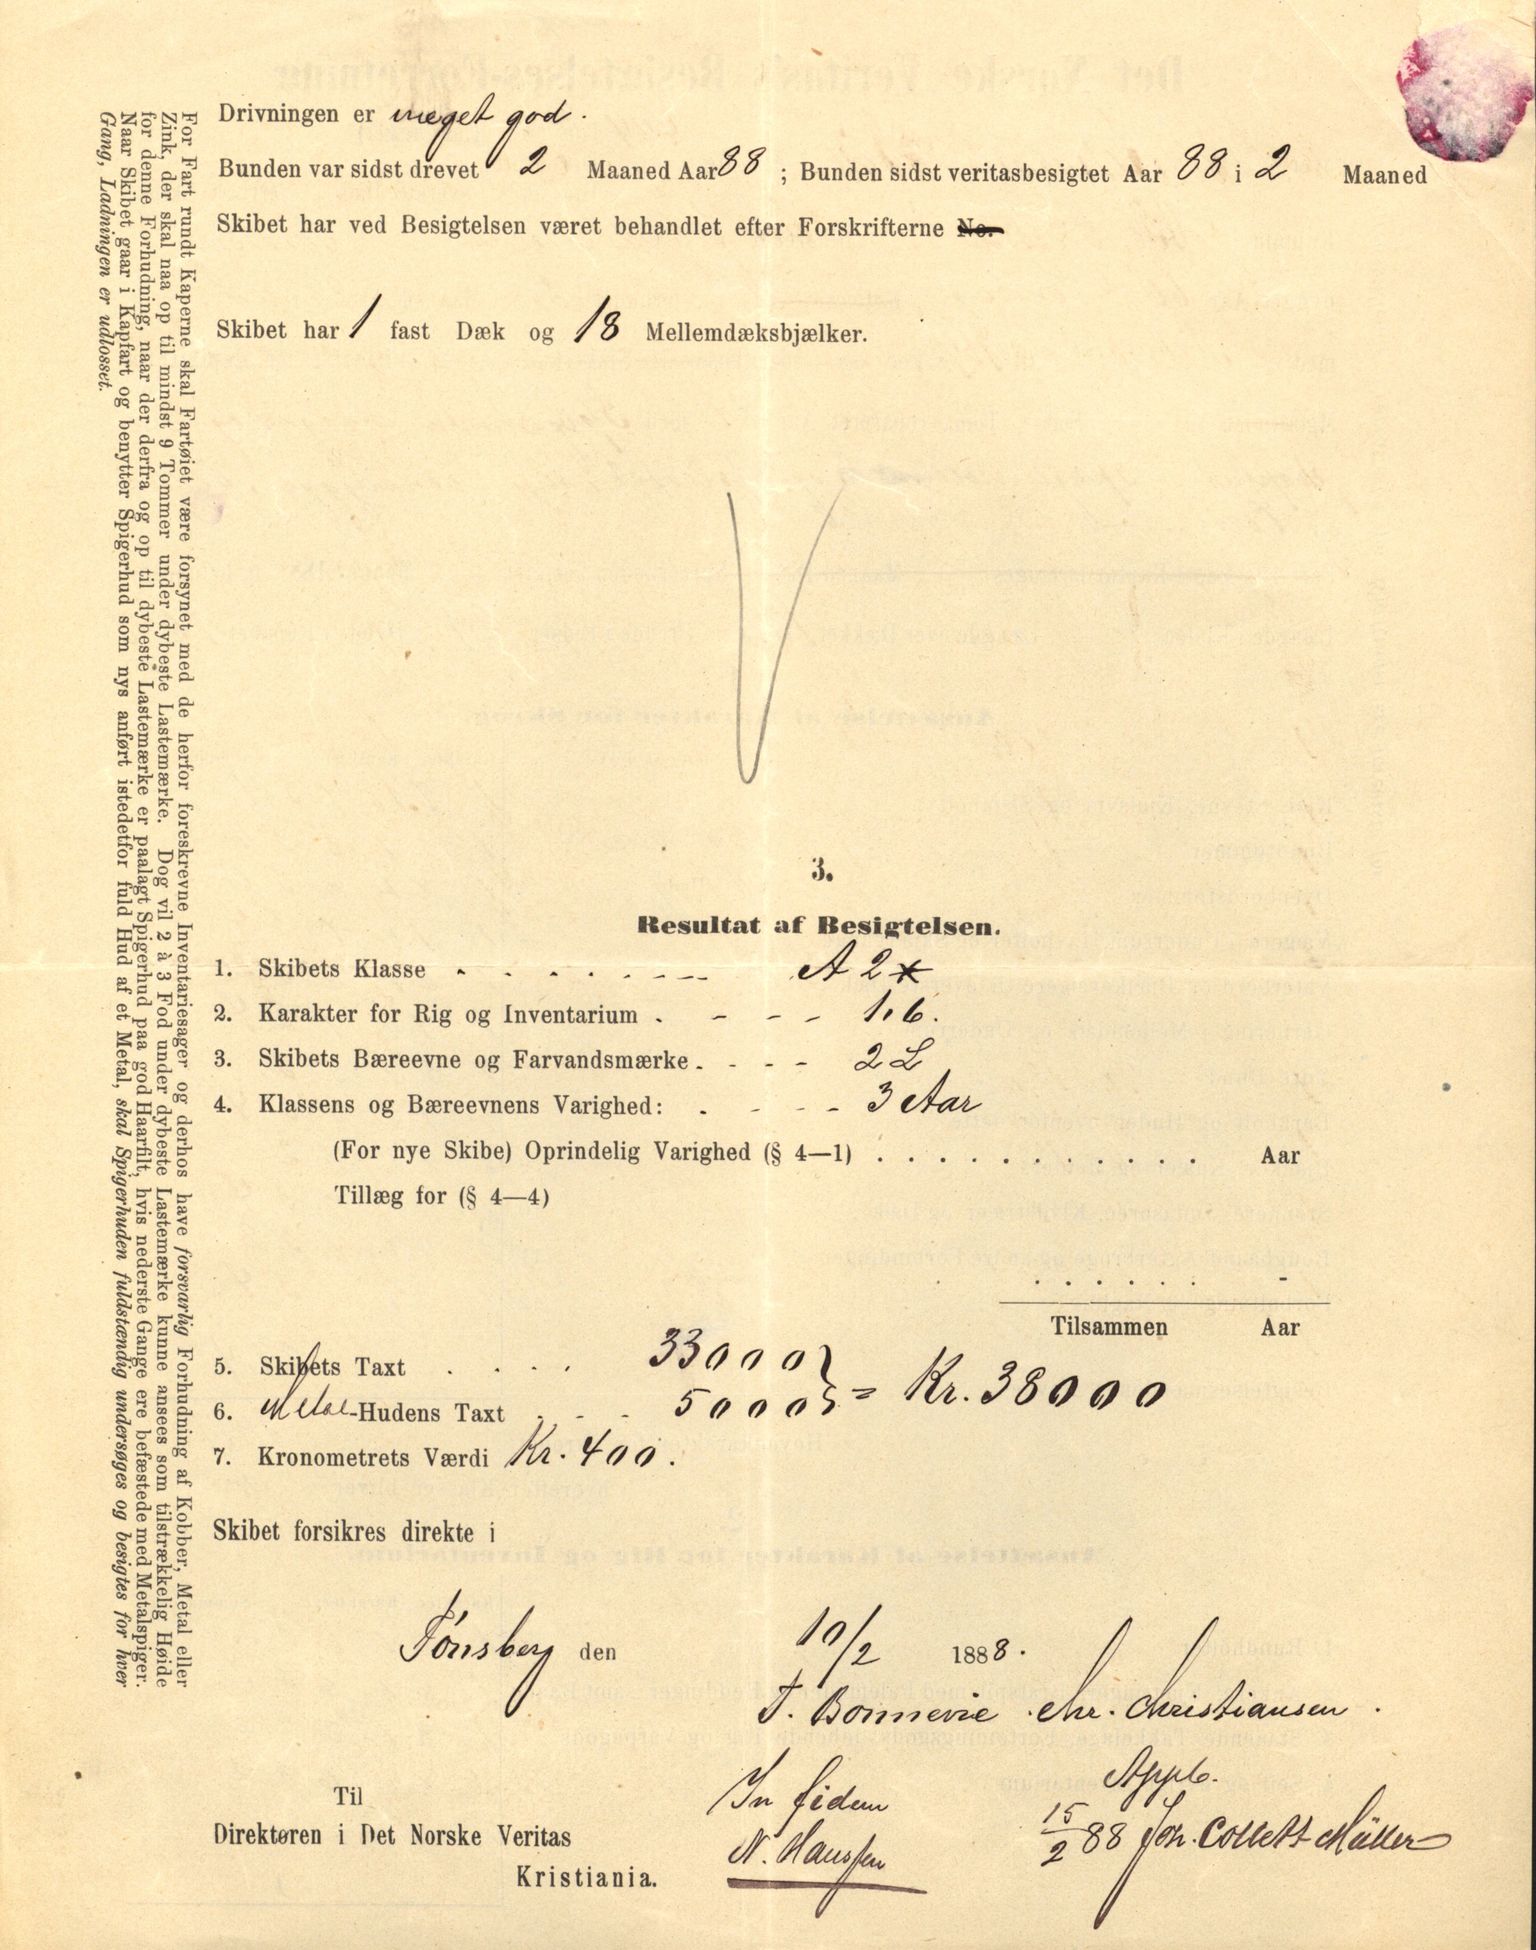 Drivningen er meget god.
Bunden var sidst drevet 2 Maaned Aar 88 ; Bunden sidst veritasbesigtet Aar 88 i 2 Maaned
Skibet har ved Besigtelsen været behandlet efter Forskrifterne No.
Skibet har 1 fast Dæk og 18 Mellemdæksbjælker.
3.
Resultat af Besigtelsen.
1. Skibets Klasse . . . . . . A 2 *
2. Karakter for Rig og Inventarium . - - - 1.6.
3. Skibets Bæreevne og Farvandsmærke . - - - 2 L
4. Klassens og Bæreevnens Varighed: . - - - 3 Aar
(For nye Skibe) Oprindelig Varighed (§ 4—1) . . . . . . . . . . . . Aar
Tillæg for (§ 4—4)
. . . . . . . -
Tilsammen Aar
5. Skibets Taxt . . . . 33000
6. Metal-Hudens Taxt . - - 5000 } = Kr. 38000
7. Kronometrets Værdi Kr. 400.
Skibet forsikres direkte i
Tönsberg den 10/2 1888.
T. Bonnevie. Chr. Christiansen.
In fidem
N. Hanssen
Appb.
15/2 88 Joh. Collett Müller
Til
Direktøren i Det Norske Veritas
Kristiania.
For Fart rundt Kaperne skal Fartøiet være forsynet med de herfor foreskrevne Inventariesager og derhos have forsvarlig Forhudning af Kobber, Metal eller
Zink, der skal naa op til mindst 9 Tommer under dybeste Lastemærke. Dog vil 2 à 3 Fod under dybeste Lastemærke kunne ansees som tilstrækkelig Høide
for denne Forhudning, naar der derfra og op til dybeste Lastemærke er paalagt Spigerhud paa god Haarfilt, hvis nederste Gange ere befæstede med Metalspiger.
Naar Skibet gaar i Kapfart og benytter Spigerhud som nys anført istedetfor fuld Hud af et Metal, skal Spigerhuden fuldstændig undersøges og besigtes for hver
Gang, Ladningen er udlosset.